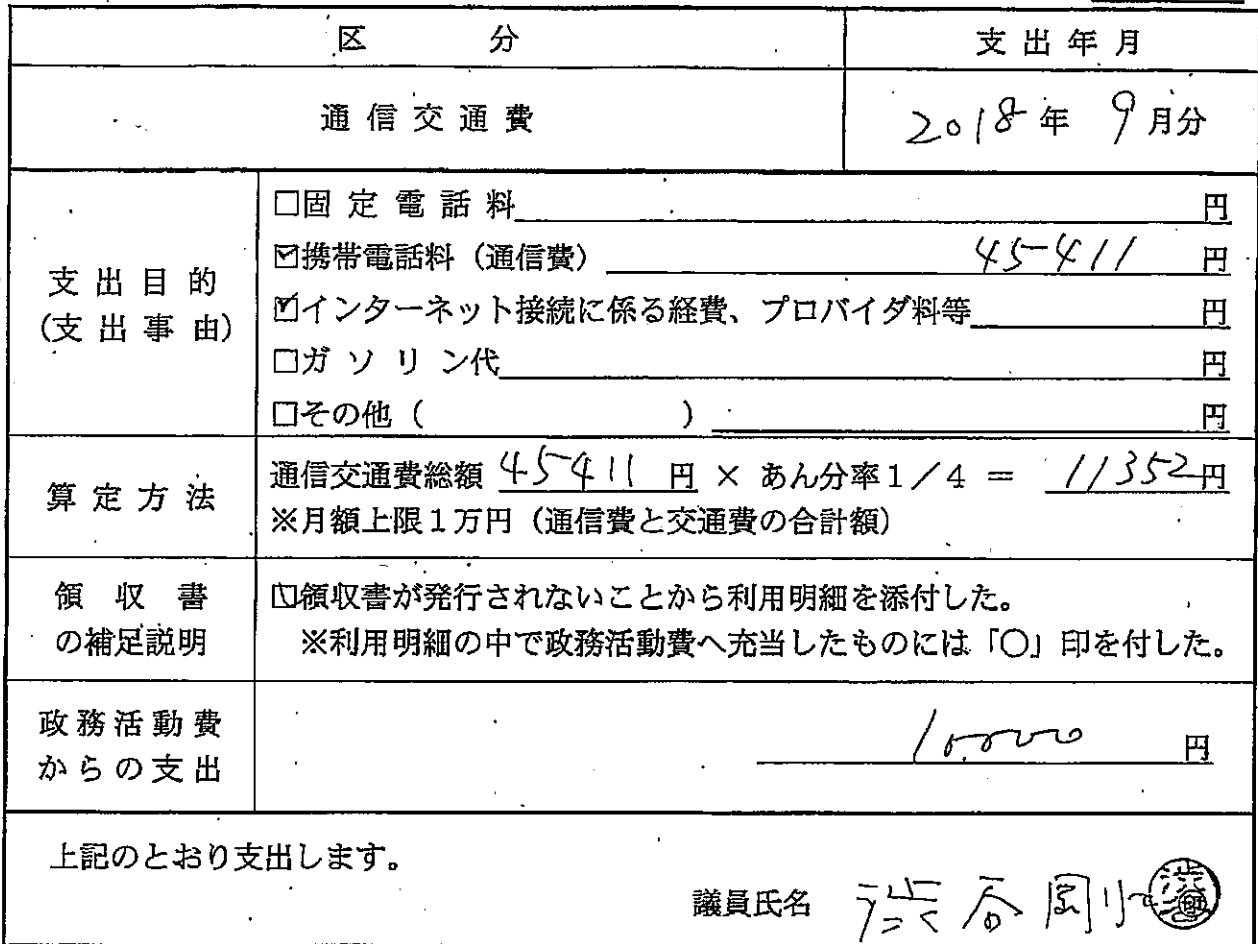 区分 支出年月
通信交通費 2018年 9月分
支出目的
(支出事由)
□固定電話料 円
☑携帯電話料（通信費） 45411 円
☑インターネット接続に係る経費、プロバイダ料等 円
□ガソリン代 円
□その他（ ） 円
算定方法
通信交通費総額 45411 円 × あん分率1／4 ＝ 11352円
※月額上限1万円（通信費と交通費の合計額）
領収書
の補足説明
☑領収書が発行されないことから利用明細を添付した。
※利用明細の中で政務活動費へ充当したものには「○」印を付した。
政務活動費
からの支出
10,000 円
上記のとおり支出します。
議員氏名 渋谷剛士